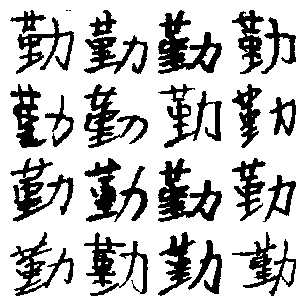 勤勤勤勤
勤勤勤勤
勤勤勤勤
勤勤勤勤